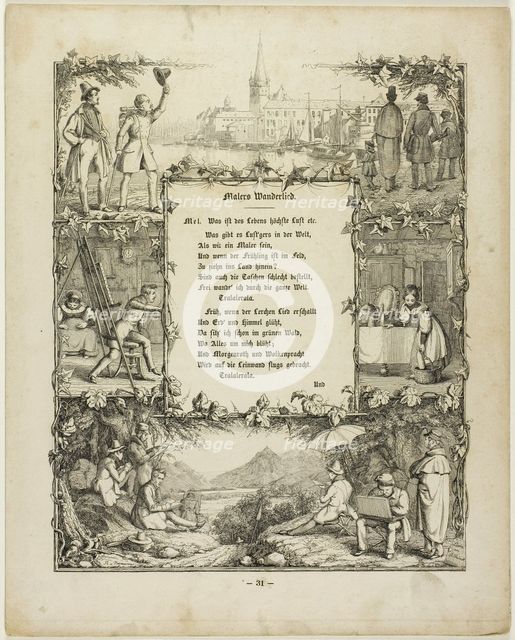 Malers Wanderlied.
Mel. Was ist des Lebens höchste Lust etc.
Was gibt es Lust'gers in der Welt,
Als wie ein Maler sein,
Und wenn der Frühling ist im Feld,
So ziehn ins Land hinein?
Sind auch die Taschen schlecht bestellt,
Frei wandr' ich durch die ganze Welt
Tralalerala.
Früh, wenn der Lerchen Lied erschallt
Und Erd' und Himmel glüht,
Da sitz' ich schon im grünen Wald,
Wo Alles um mich blüht;
Und Morgenroth und Wolkenpracht
Wird auf die Leinwand flugs gebracht.
Tralalerala.
Und
– 31 –